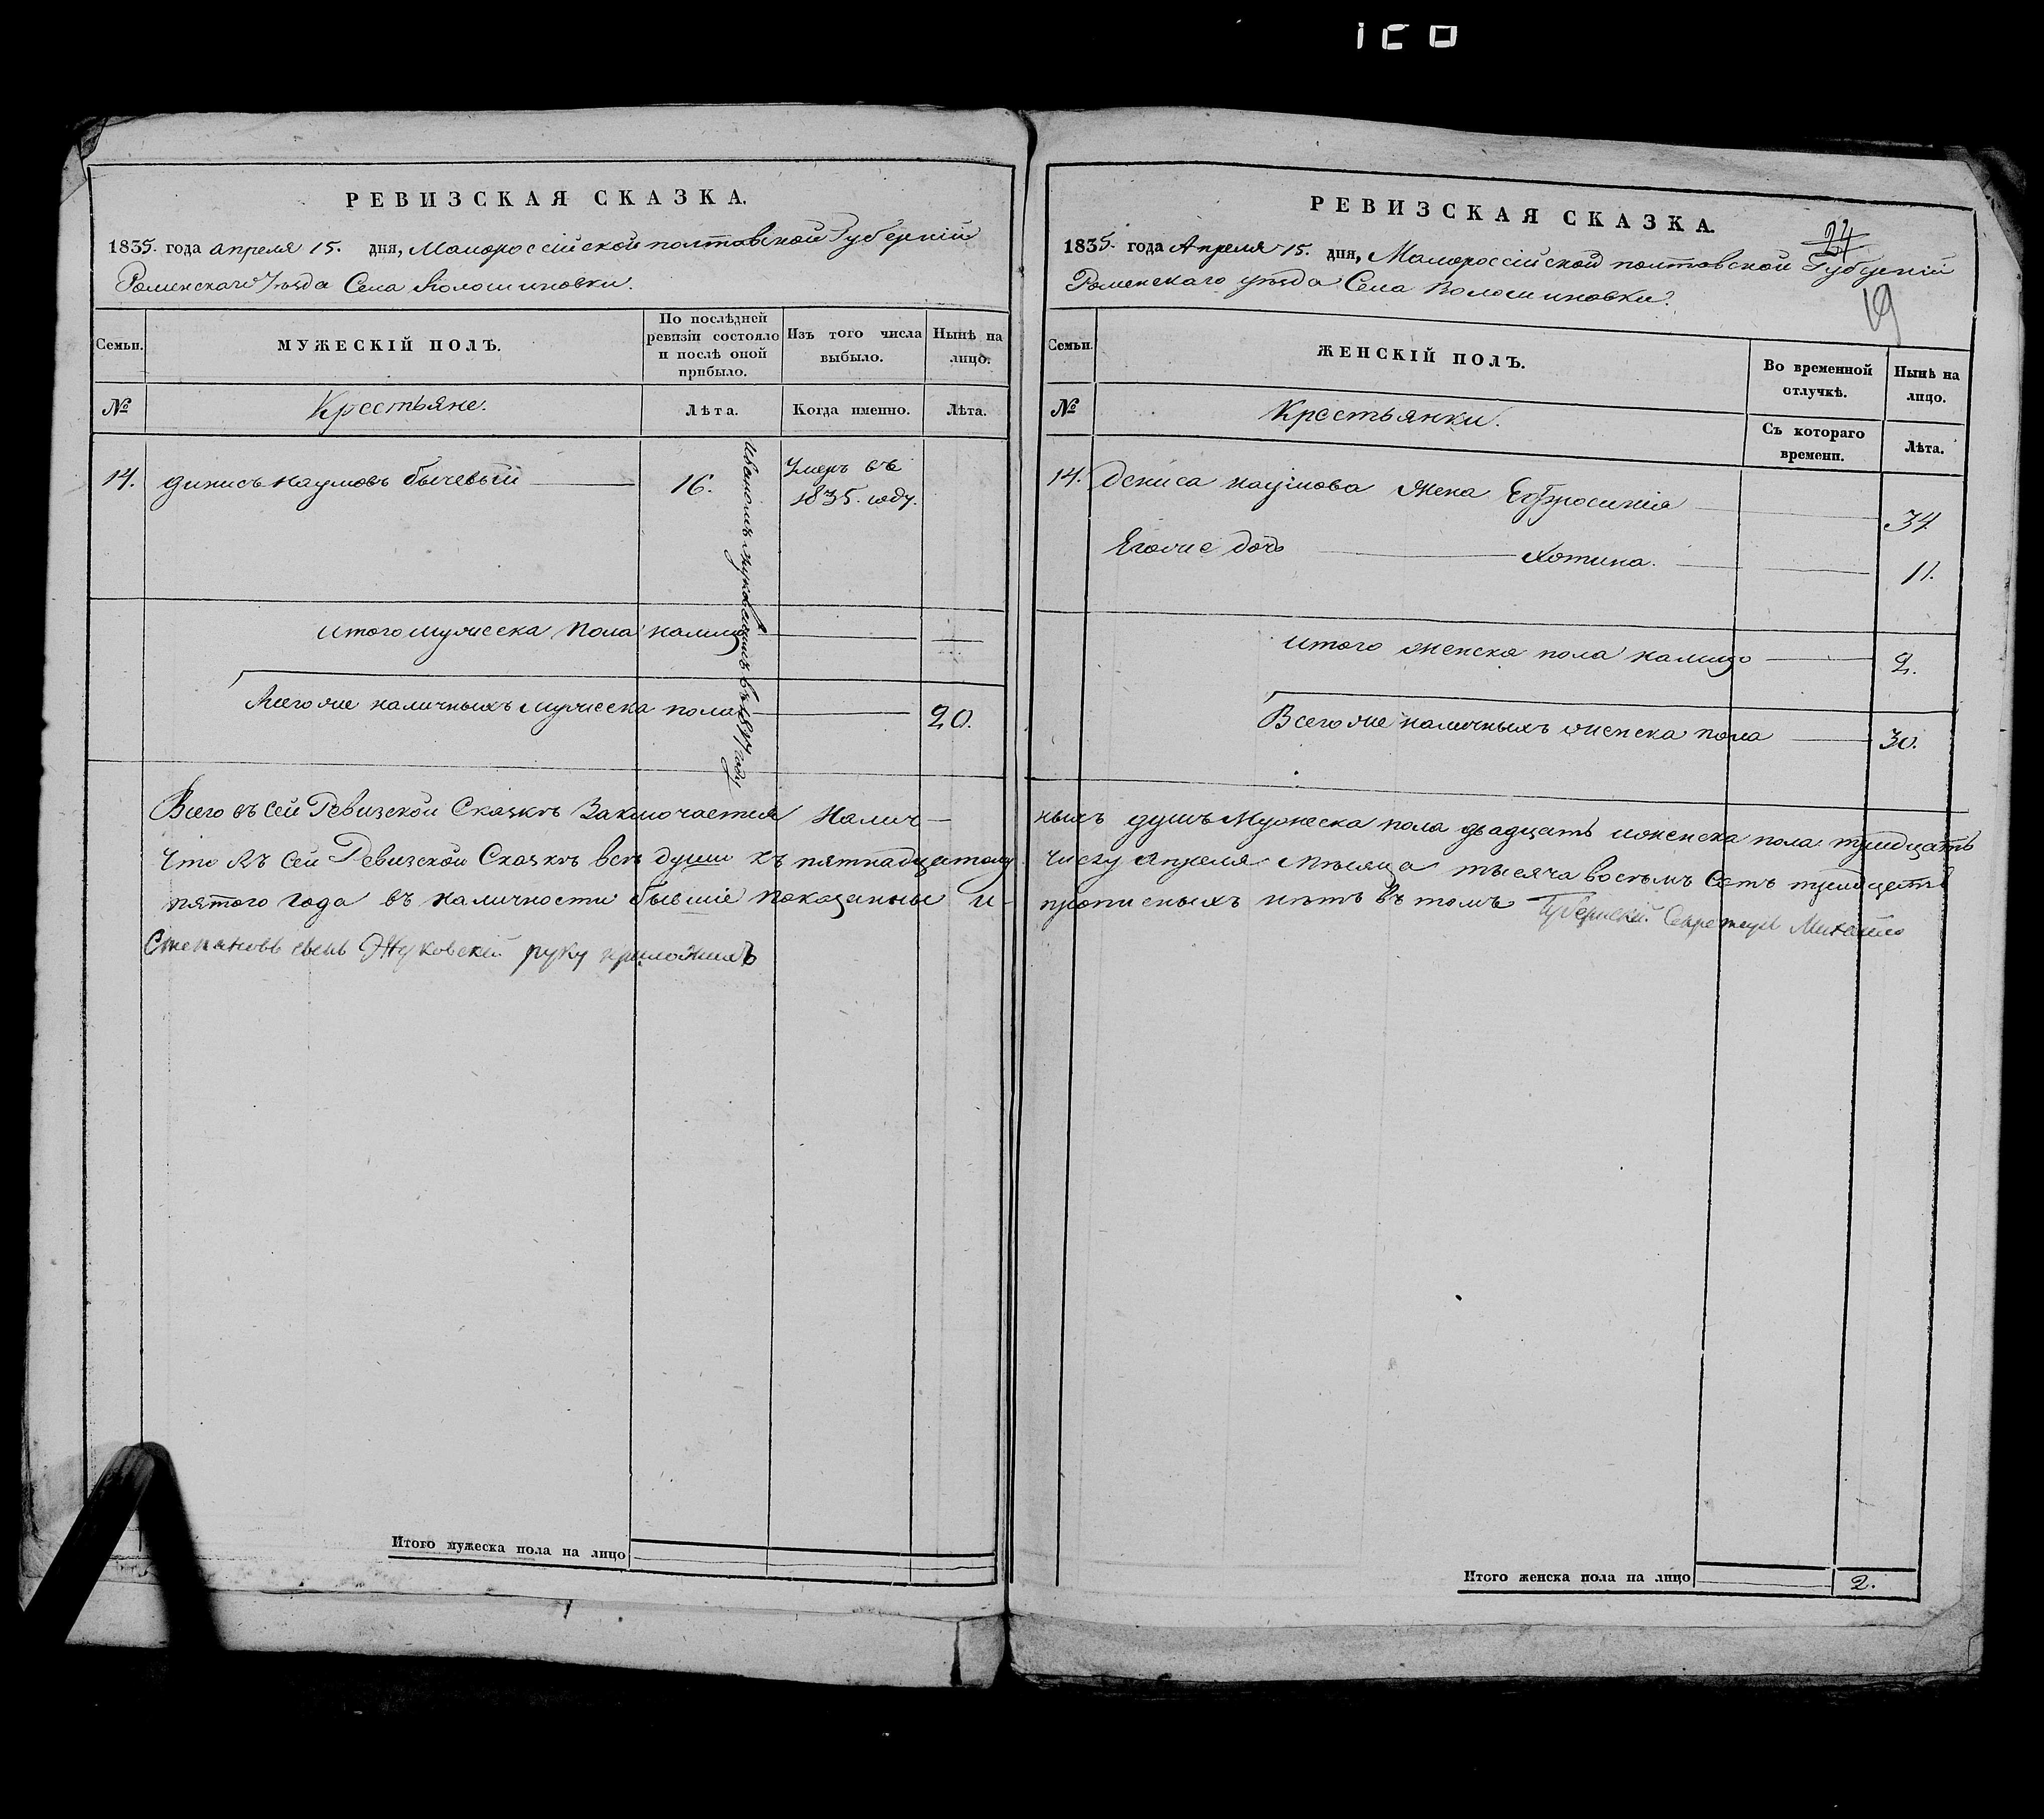 ICO
РЕВИЗСКАЯ СКАЗКА.
1835. года апреля 15. дня, Малороссійской полтавской Губерніи
Роменскаго Уезда Села Волошиновки.
Семьи.
МУЖЕСКІЙ ПОЛЪ.
По послѣдней ревизіи состояло и послѣ оной прибыло.
Изъ того числа выбыло.
Нынѣ на лицо.
№
Крестьяне.
Лѣта.
Когда именно.
Лѣта.
14. Динисъ Наумовъ бычевый 16. Умеръ въ
1835. году.
въ 1827 году
итого мужеска пола налицо
Всего же наличныхъ мужеска пола 20.
Всего въ сей Ревизской Сказкѣ Заключается Налич-
Что въ сей Ревизской Сказкѣ всѣ души къ пятнадцатому
пятого года въ наличности бывшіе показанны и-
Степановъ сынъ Жуковскій руку приложилъ
Итого мужеска пола на лицо
РЕВИЗСКАЯ СКАЗКА.
24
1835. года Апреля 15. дня, Малороссійской полтавской Губерніи
Роменскаго уезда Села Волошиновки.
19
Семьи.
ЖЕНСКІЙ ПОЛЪ.
Во временной отлучкѣ.
Нынѣ на лицо.
№
Крестьянки.
Съ котораго времени.
Лѣта.
14. Дениса наумова жена Ефросинія 34
Егоже дочь Хотина. 11.
итого женска пола налицо 2.
Всего же наличныхъ женска пола 30.
ныхъ душъ Мужеска пола двадцать иженска пола тридцать
числу Апреля Мѣсяца тысяча восемъ сотъ тридцать
прописныхъ нѣтъ въ томъ Губернскій Секретарь Михайло
Итого женска пола на лицо 2.